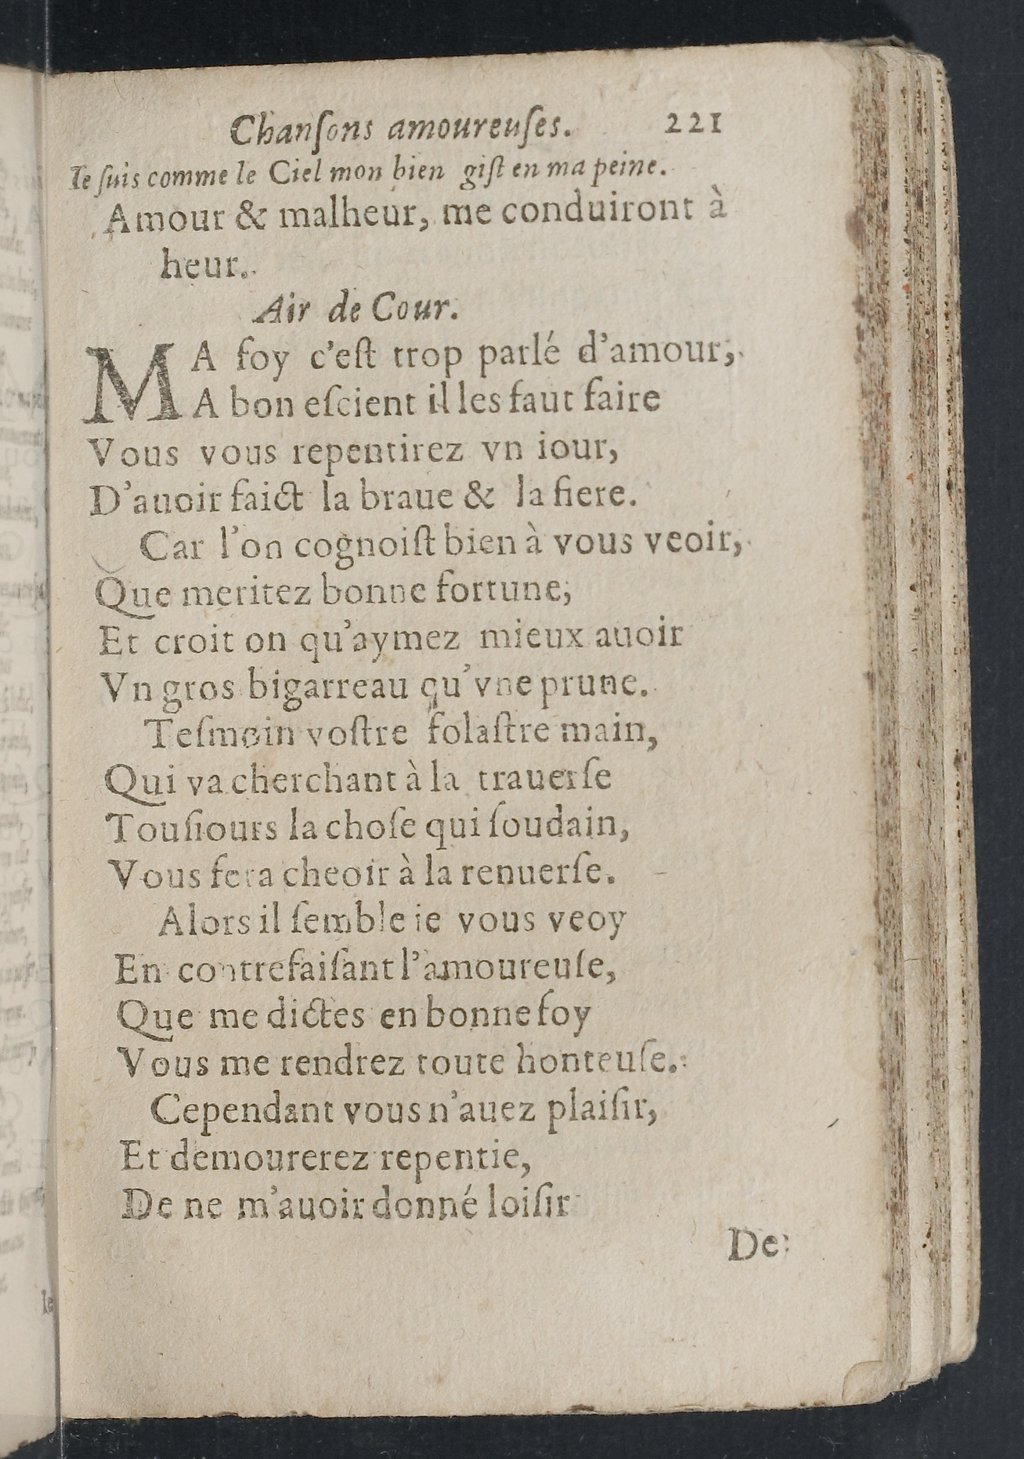 Chanſons amoureuſes. 221
Ie ſuis comme le Ciel mon bien giſt en ma peine.
Amour & malheur, me conduiront à
heur.
Air de Cour.
MA foy c'eſt trop parlé d'amour,
A bon eſcient il les faut faire
Vous vous repentirez vn iour,
D'auoir faict la braue & la fiere.
Car l'on cognoiſt bien à vous veoir,
Que meritez bonne fortune,
Et croit on qu'aymez mieux auoir
Vn gros bigarreau qu'vne prune.
Teſmoin voſtre folaſtre main,
Qui va cherchant à la trauerſe
Touſiours la choſe qui ſoudain,
Vous fera cheoir à la renuerſe.
Alors il ſemble ie vous veoy
En contrefaiſant l'amoureuſe,
Que me dictes en bonne foy
Vous me rendrez toute honteuſe.
Cependant vous n'auez plaiſir,
Et demourerez repentie,
De ne m'auoir donné loiſir
De